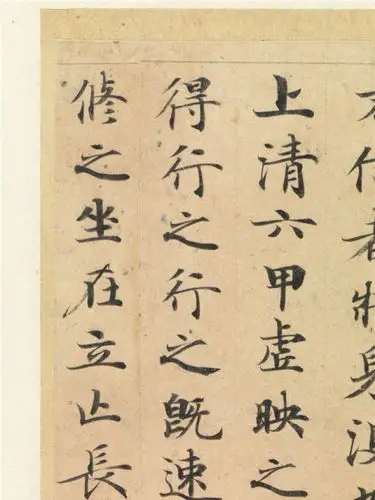 者身
上清六甲虛映之
得行之行之既速
修之坐在立亡長